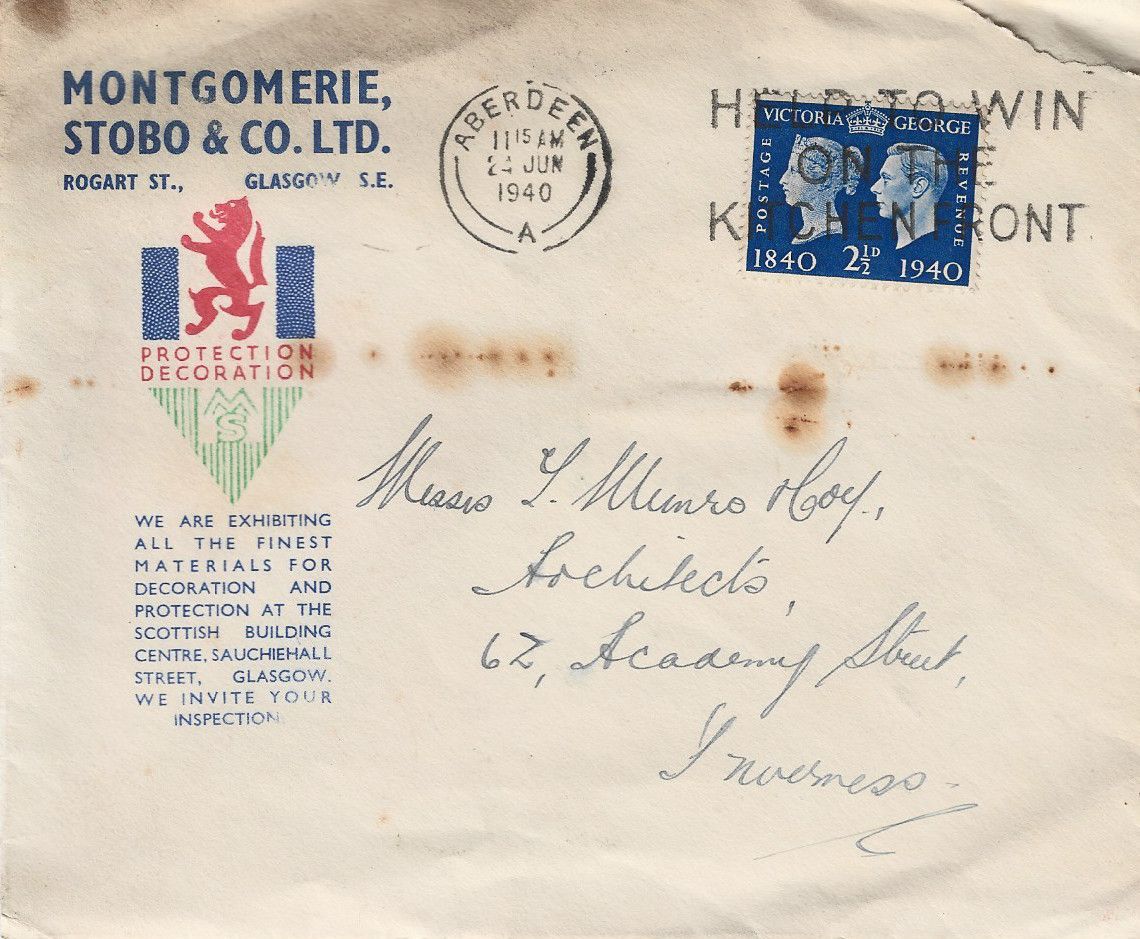 MONTGOMERIE,
STOBO & CO. LTD.
ROGART ST., GLASGOW S.E.
PROTECTION
DECORATION
MS
WE ARE EXHIBITING
ALL THE FINEST
MATERIALS FOR
DECORATION AND
PROTECTION AT THE
SCOTTISH BUILDING
CENTRE, SAUCHIEHALL
STREET, GLASGOW.
WE INVITE YOUR
INSPECTION.
ABERDEEN
11 15 AM
24 JUN
1940
A
HELP TO WIN
ON THE
KITCHEN FRONT
VICTORIA GEORGE
POSTAGE
REVENUE
1840 2½D 1940
Messrs Munro
Architects,
62, Academy Street,
Inverness